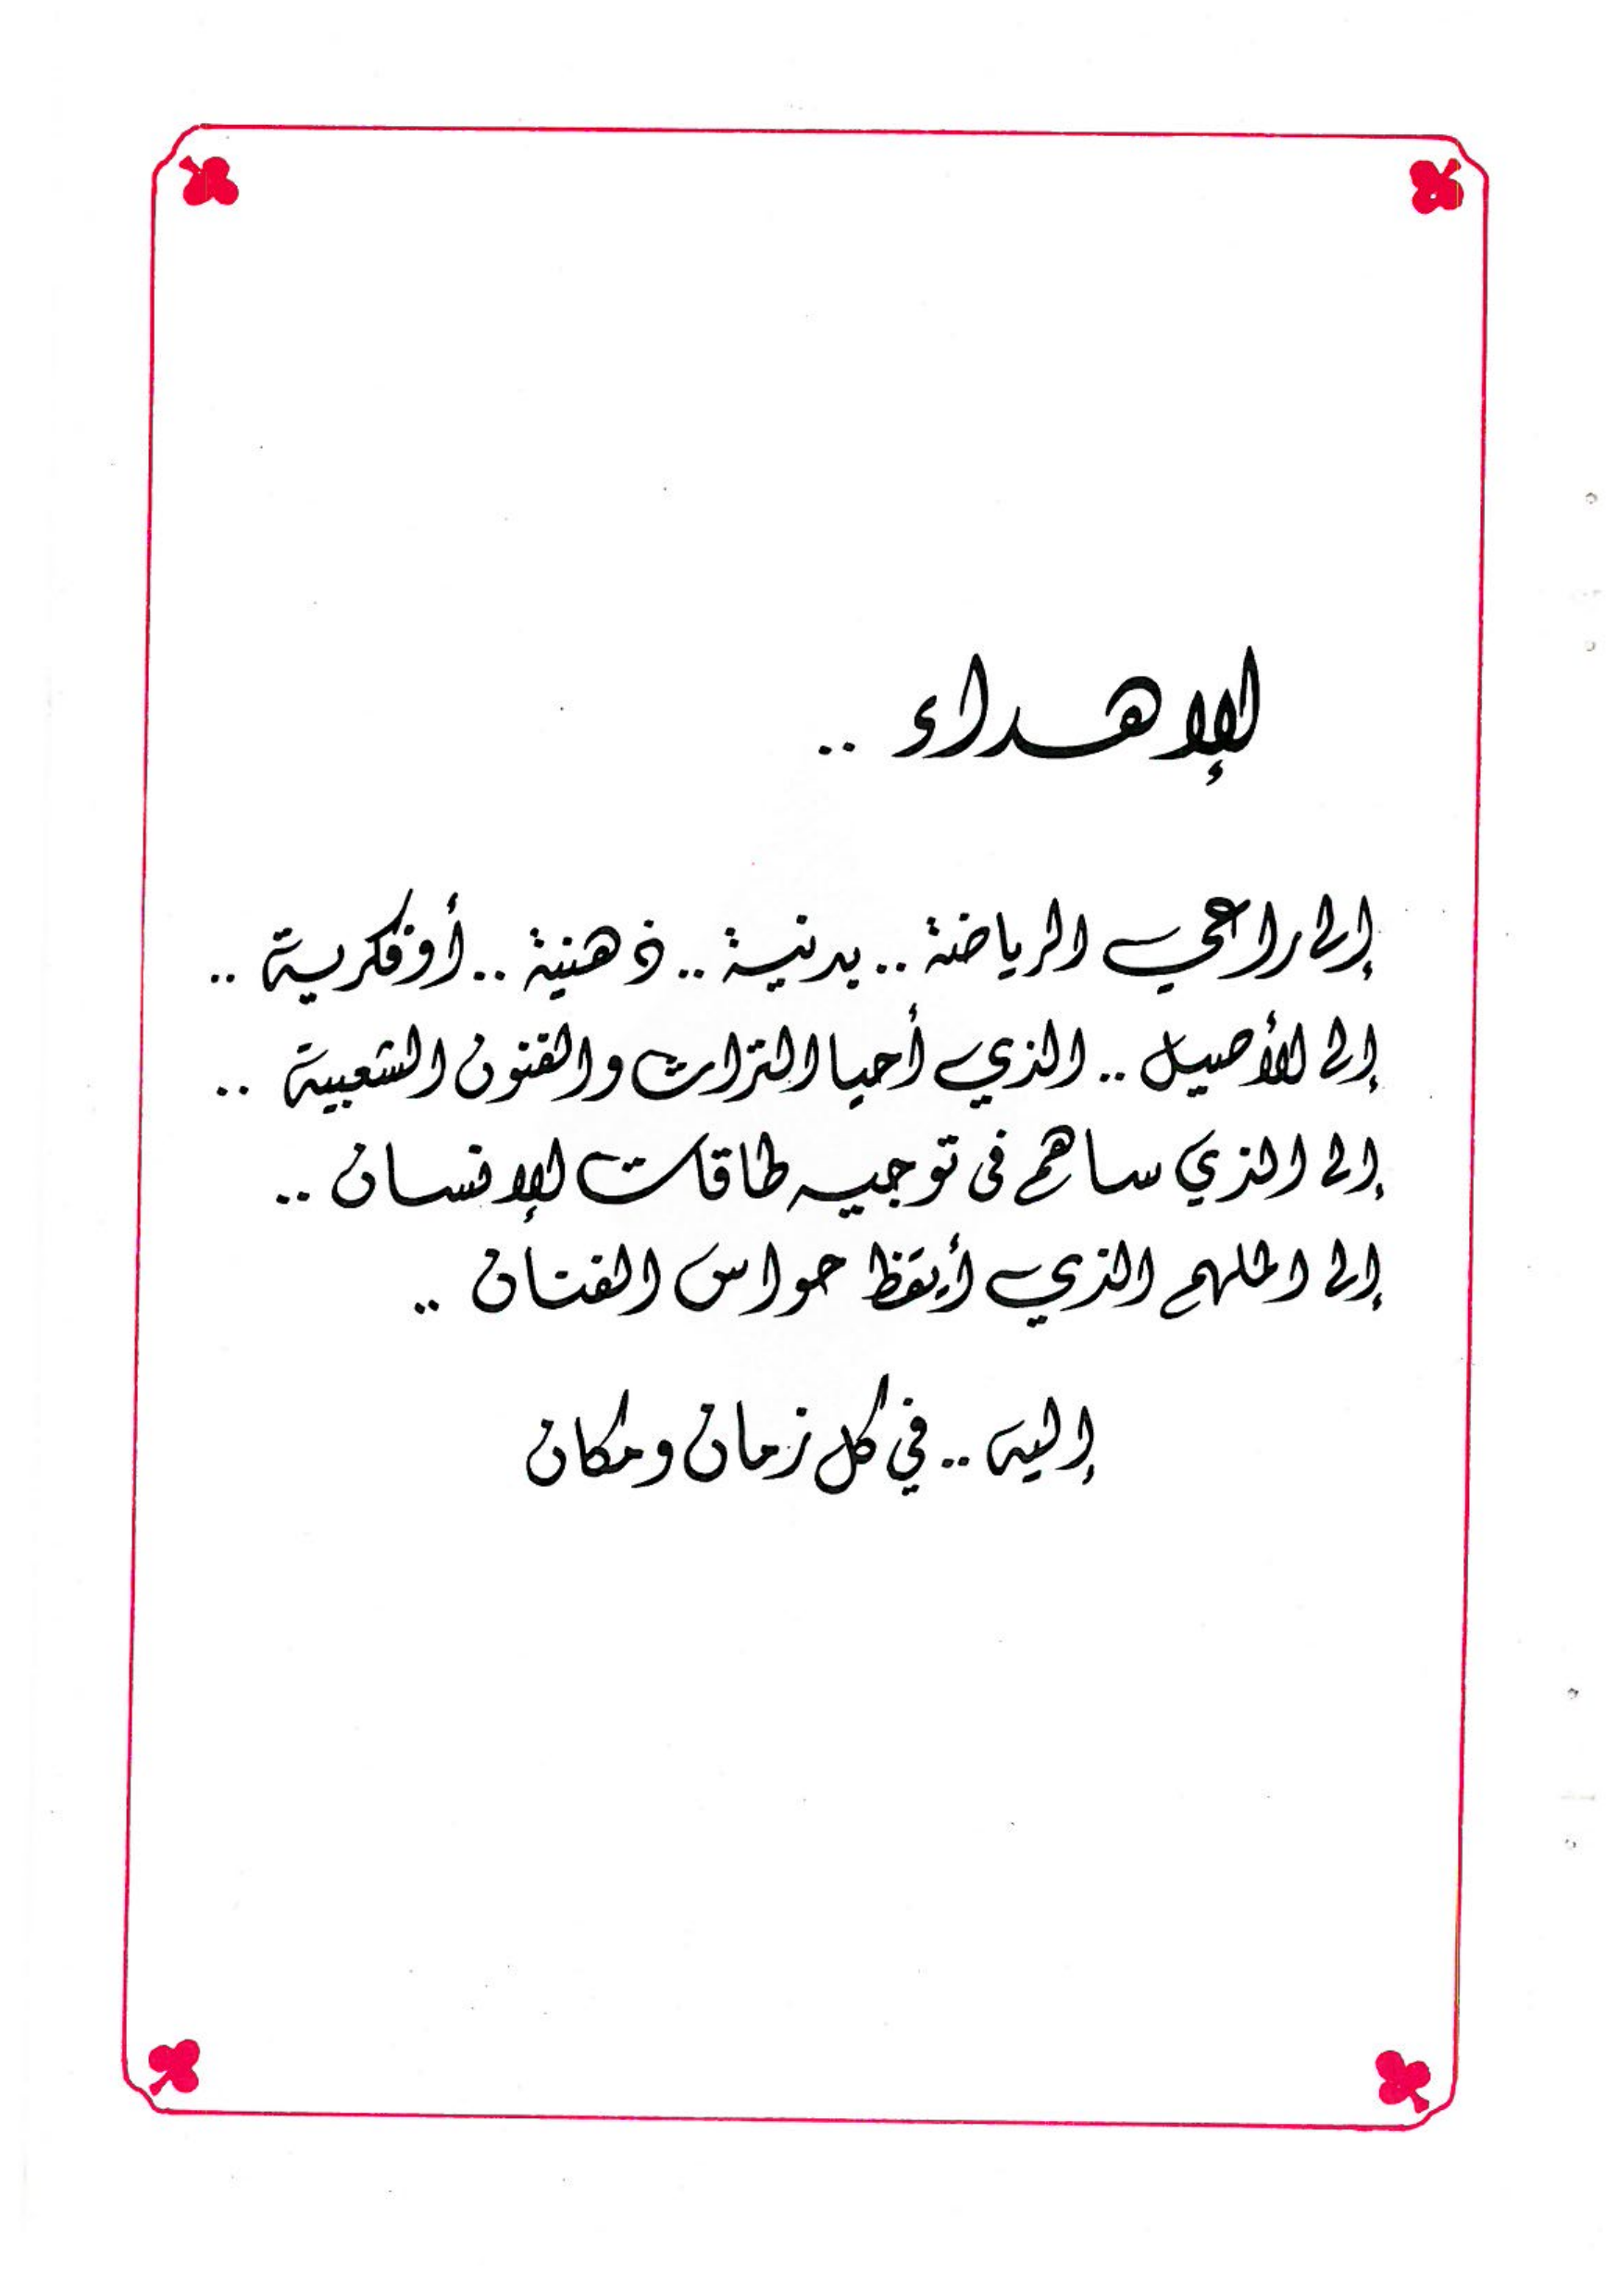 الإهداء ..
إلى راعي الرياضة .. بدنية .. ذهنية .. أو فكرية ..
إلى الأصيل .. الذي أحيا التراث والفنون الشعبية ..
إلى الذي ساهم في توجيه طاقات الإنسان ..
إلى الملهم الذي أيقظ حواس الفنان ..
إليه .. في كل زمان ومكان